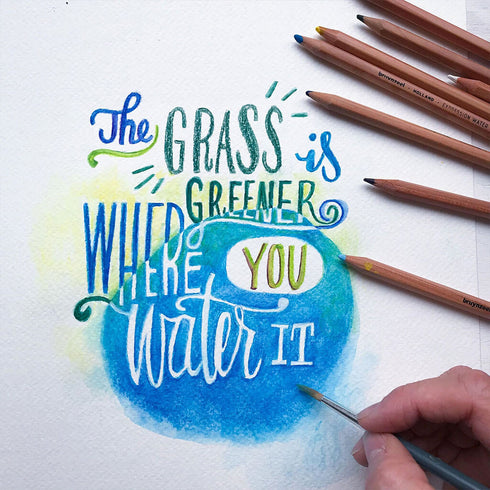 The GRASS is
GREENER
WHERE YOU
Water IT
bruynzeel · HOLLAND · EXPRESSION WATER
bruynzeel